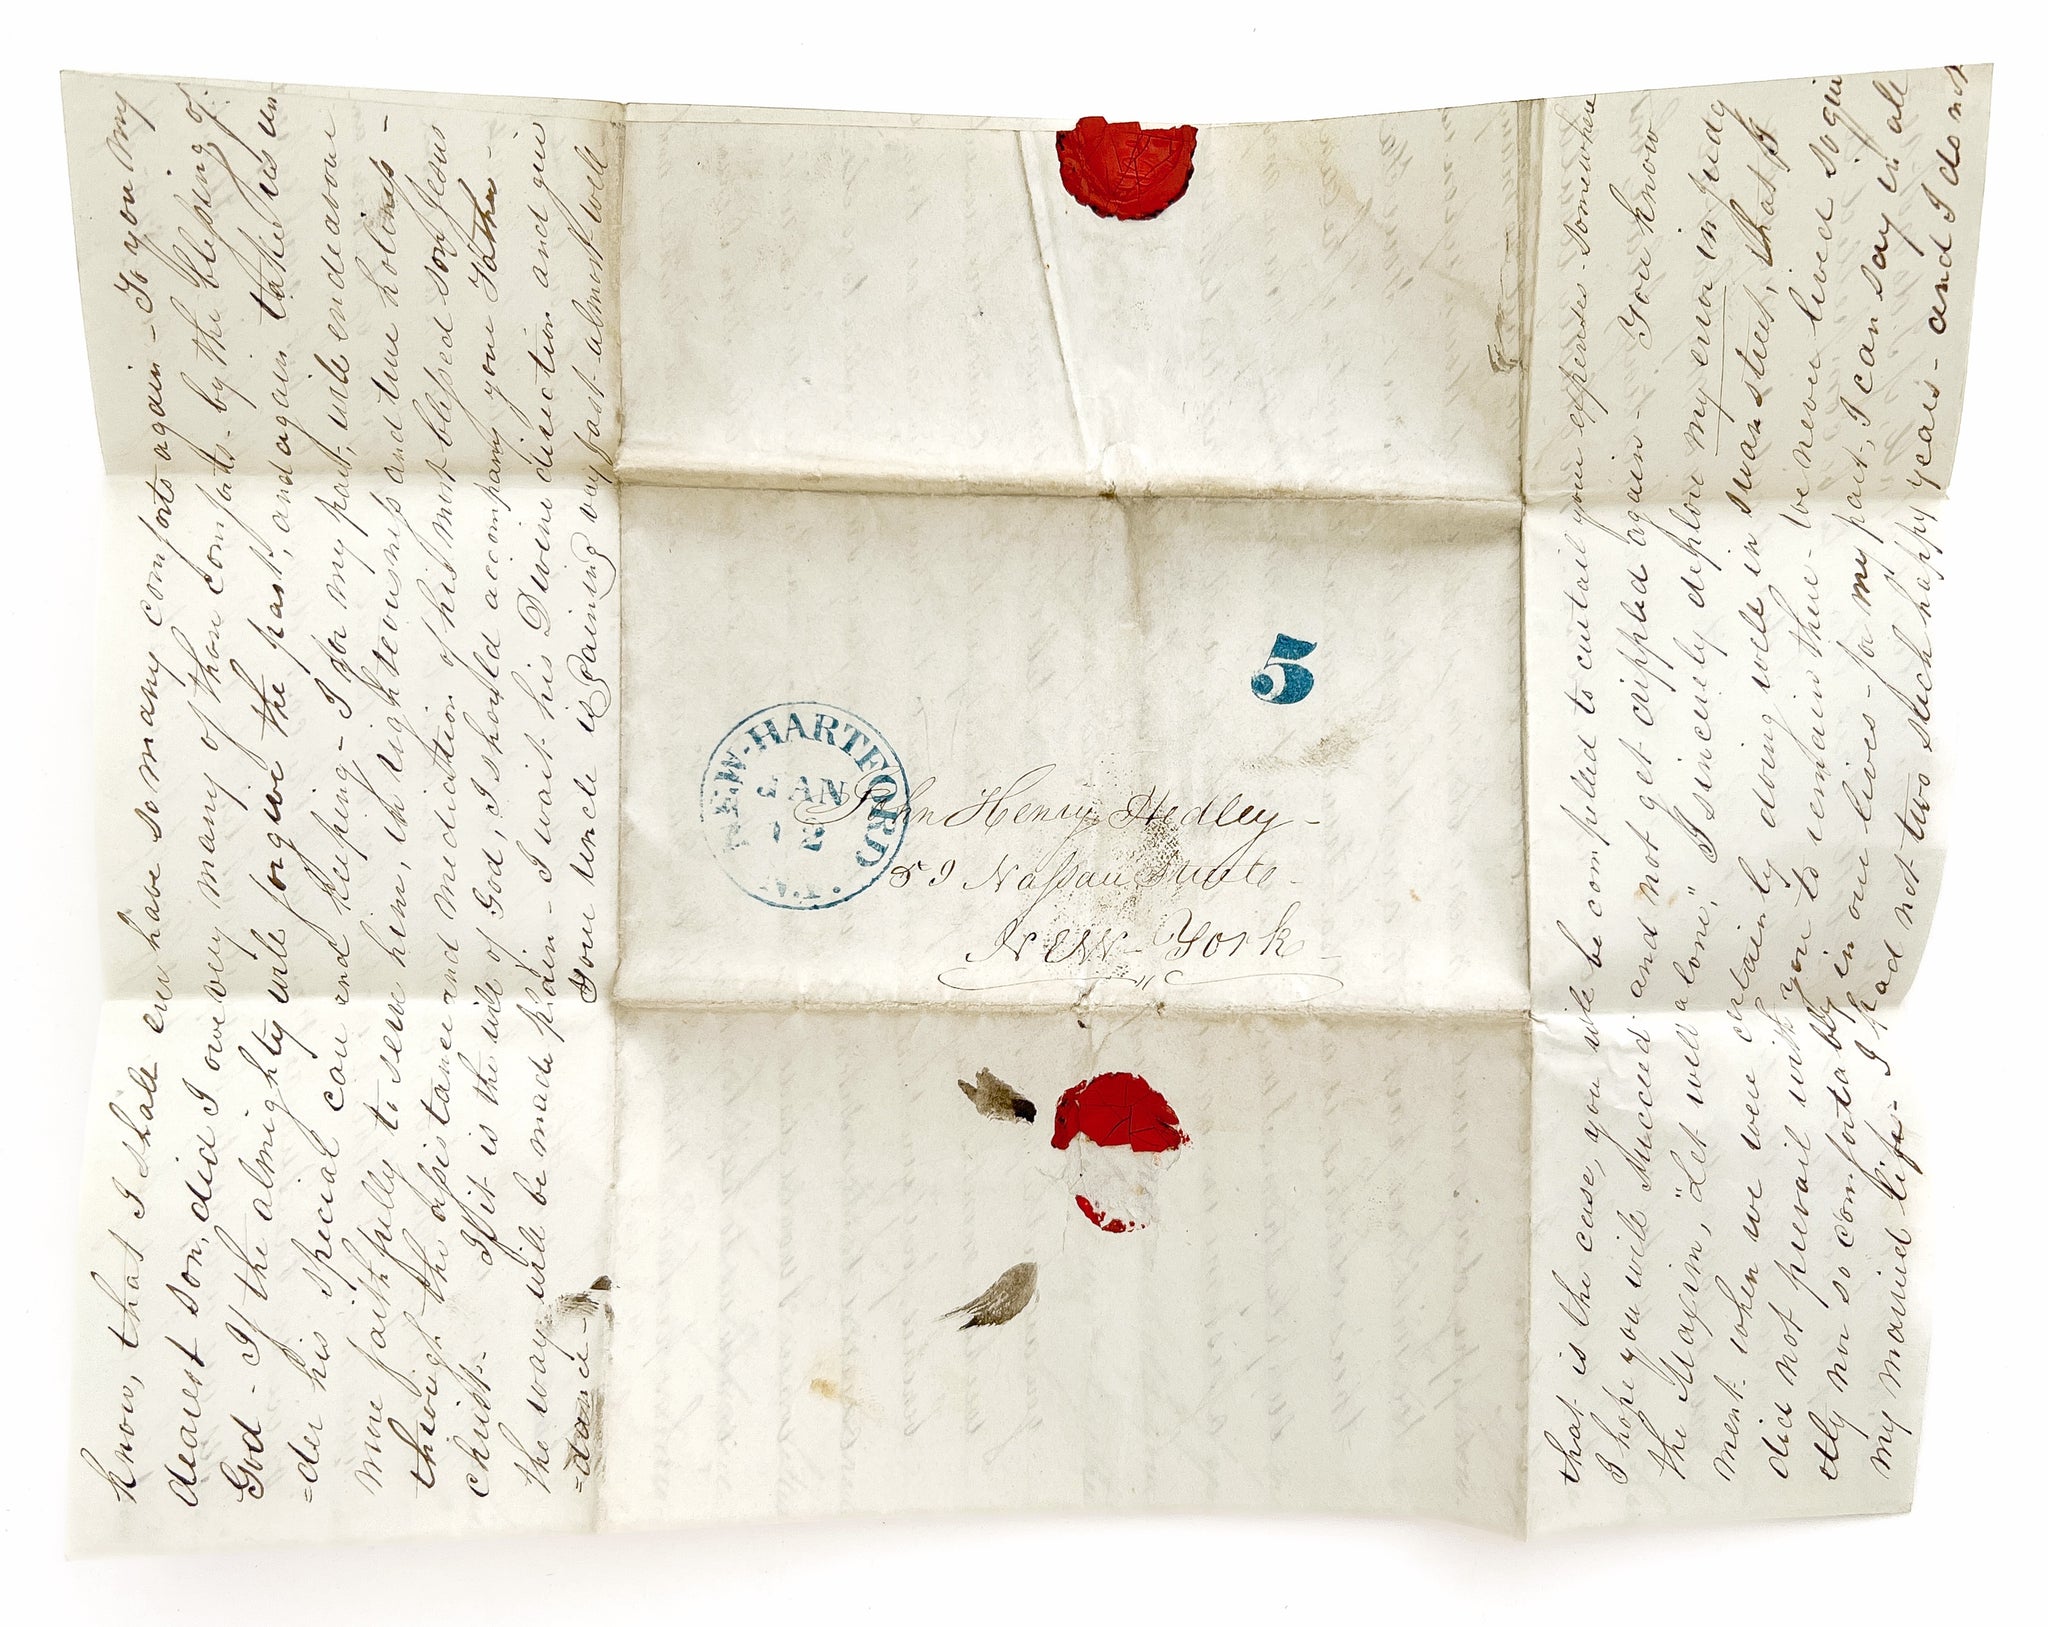 that is the case, you will be compelled to curtail your expenses somewhere
I hope you will succeed and not get crippled again - You know
the Maxim, "Let well alone," I sincerely deplore my error in judg
ment when we were certainly doing well in swan street, that I
did not prevail with you to remain there - we never lived so quie
etly nor so comfortably in our lives - for my part, I can say in all
my married life - I had not two such happy years - and I do not
know, that I shall ever have so many comforts again - To you my
dearest son, did I owe very many of those comforts - by the blessing of
God - If the almighty will forgive the past, and again take us un
=der his special care and keeping - I for my part, will endeavour
more faithfully to serve him, in righteousness and true holiness -
through the assistance and mediation of his most blessed son Jesus
christ - If it is the will of God, I should accompany your Father -
the way will be made plain - I wait his Divine direction and gui
=dance -
Your uncle is gaining very fast - almost well
NEW-HARTFORD
JAN
12
N.Y.
5
John Henry Hedley -
59 Nassau Street -
New - York -